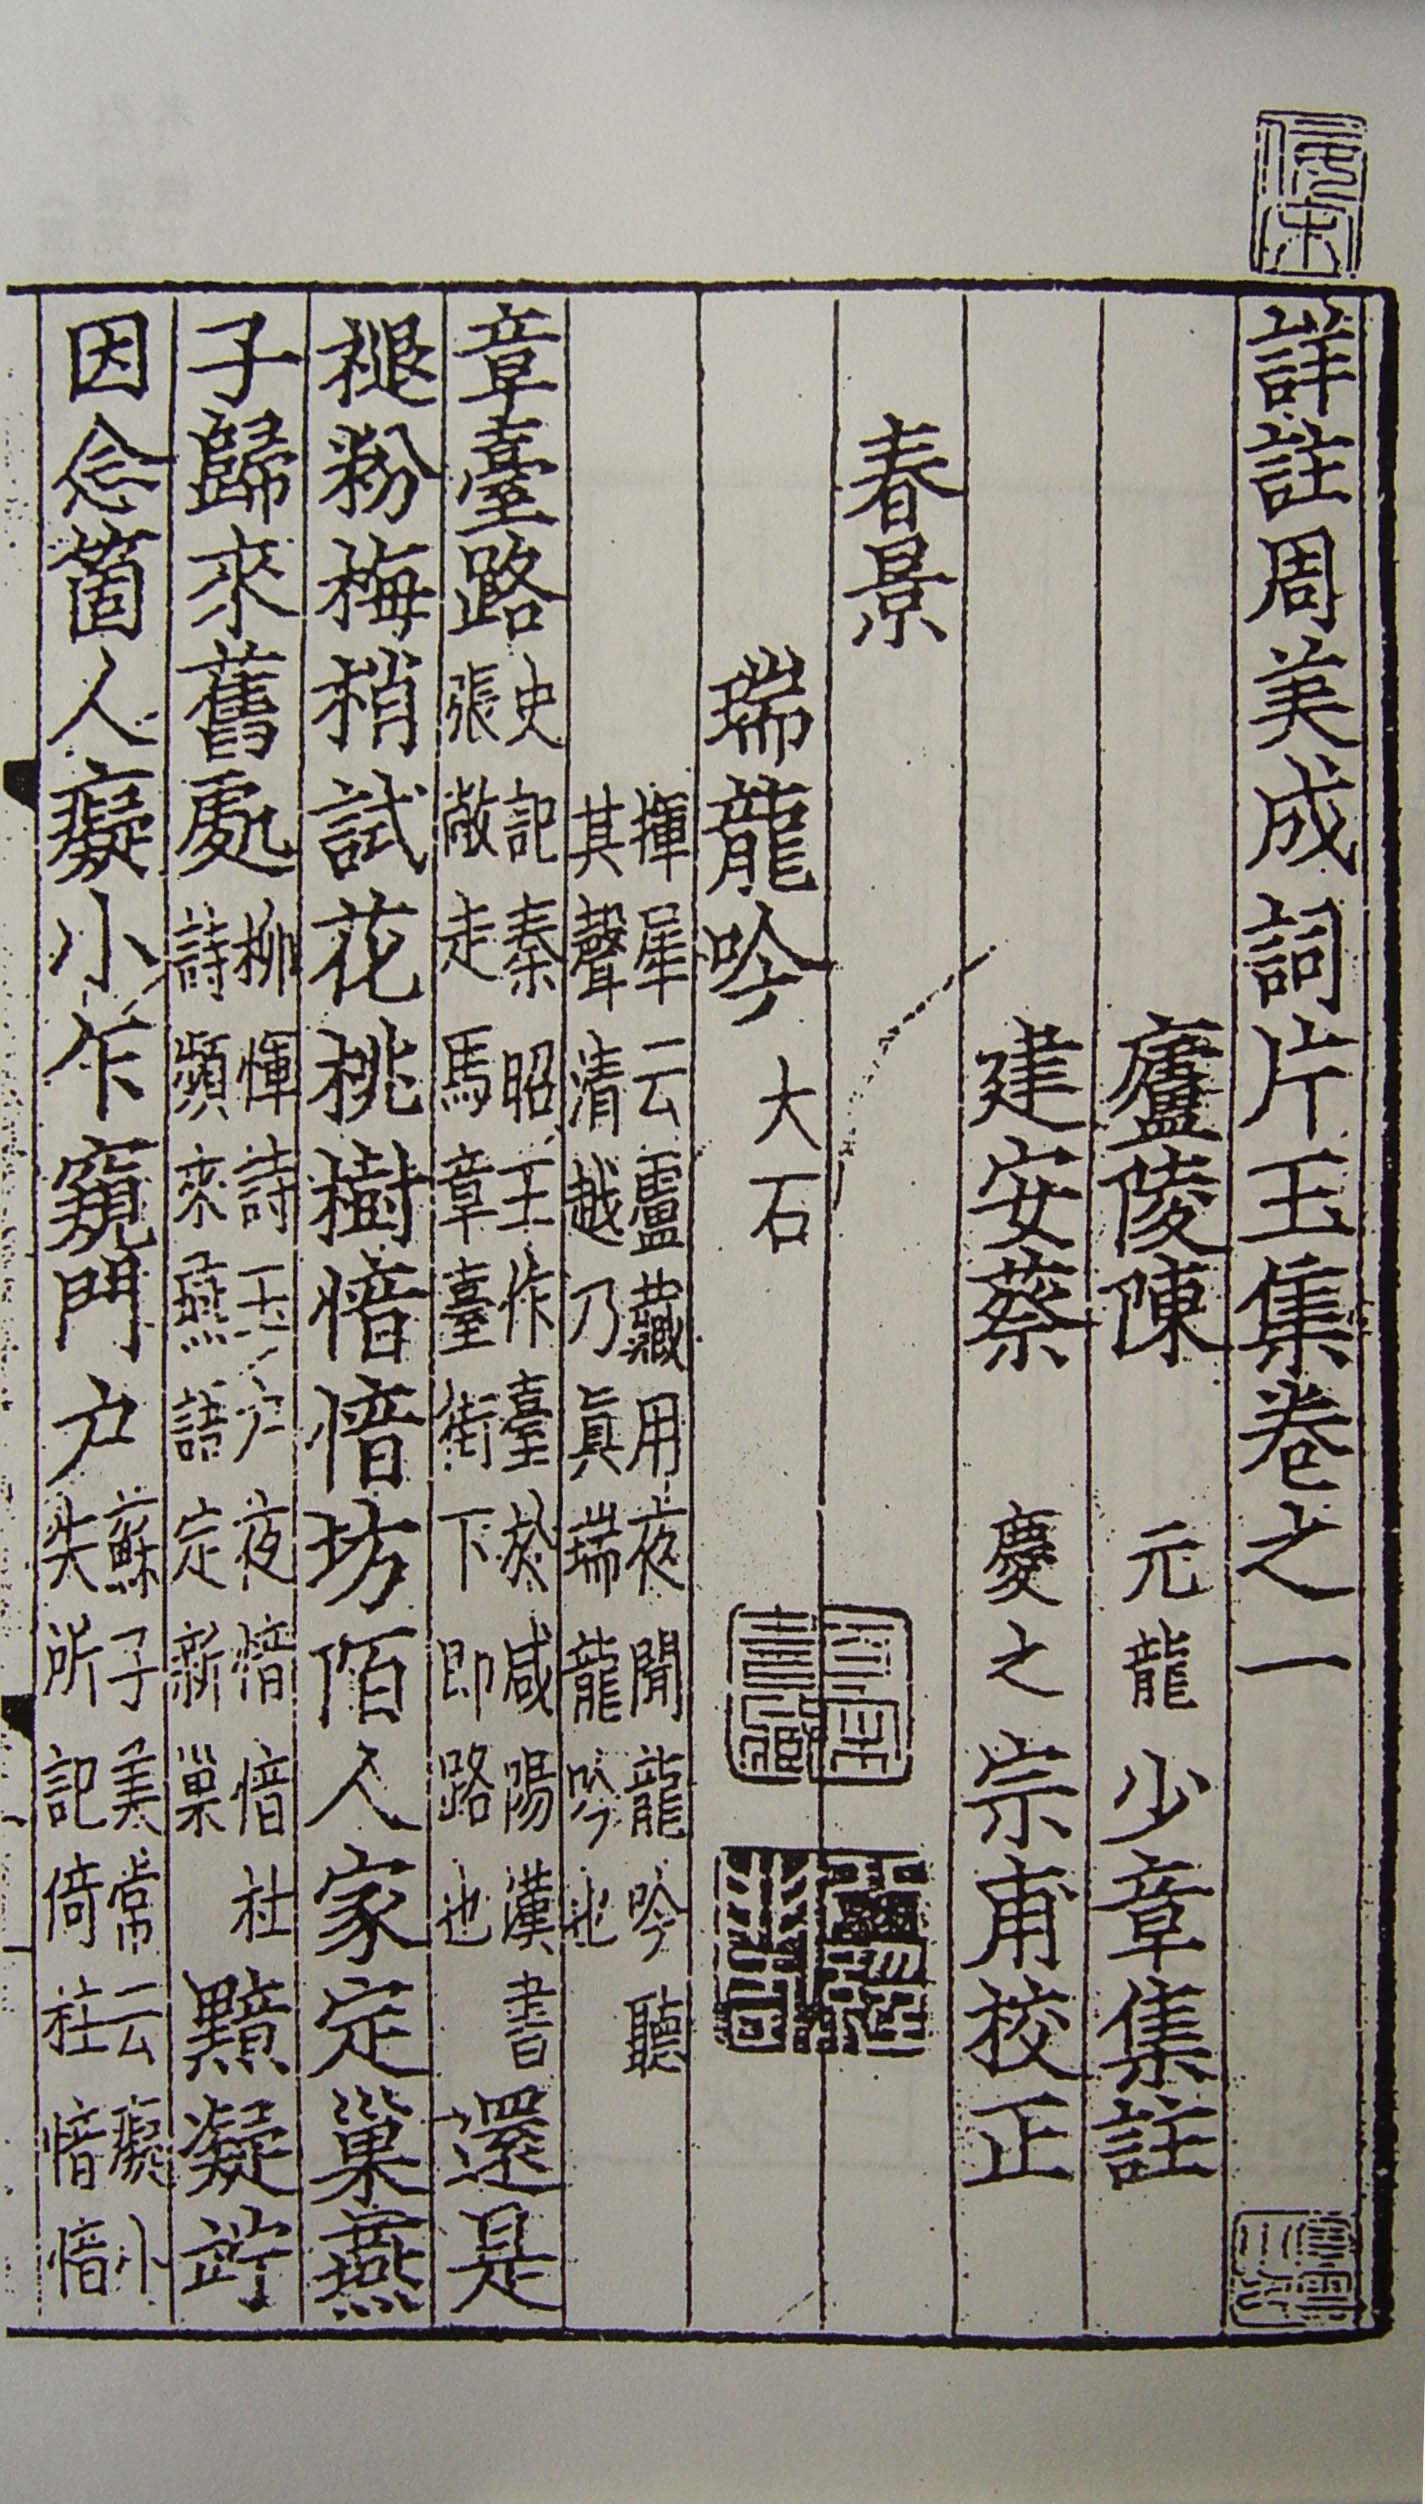 詳註周美成詞片玉集卷之一
廬陵陳 元龍 少章集註
建安蔡 慶之宗甫校正
春景
瑞龍吟 大石
揮犀云盧藏用夜聞龍吟聽
其聲清越乃眞瑞龍吟也
章臺路 史記秦昭王作臺於咸陽漢書
張敞走馬章臺街下即路也 還是
褪粉梅梢試花桃樹愔愔坊陌人家定巢燕
子歸來舊處 柳惲詩玉戶夜愔愔杜
詩頻來燕語定新巢 黯凝竚
因念箇人癡小乍窺門戶 蘇子美常云癡小
失所記倚社愔愔